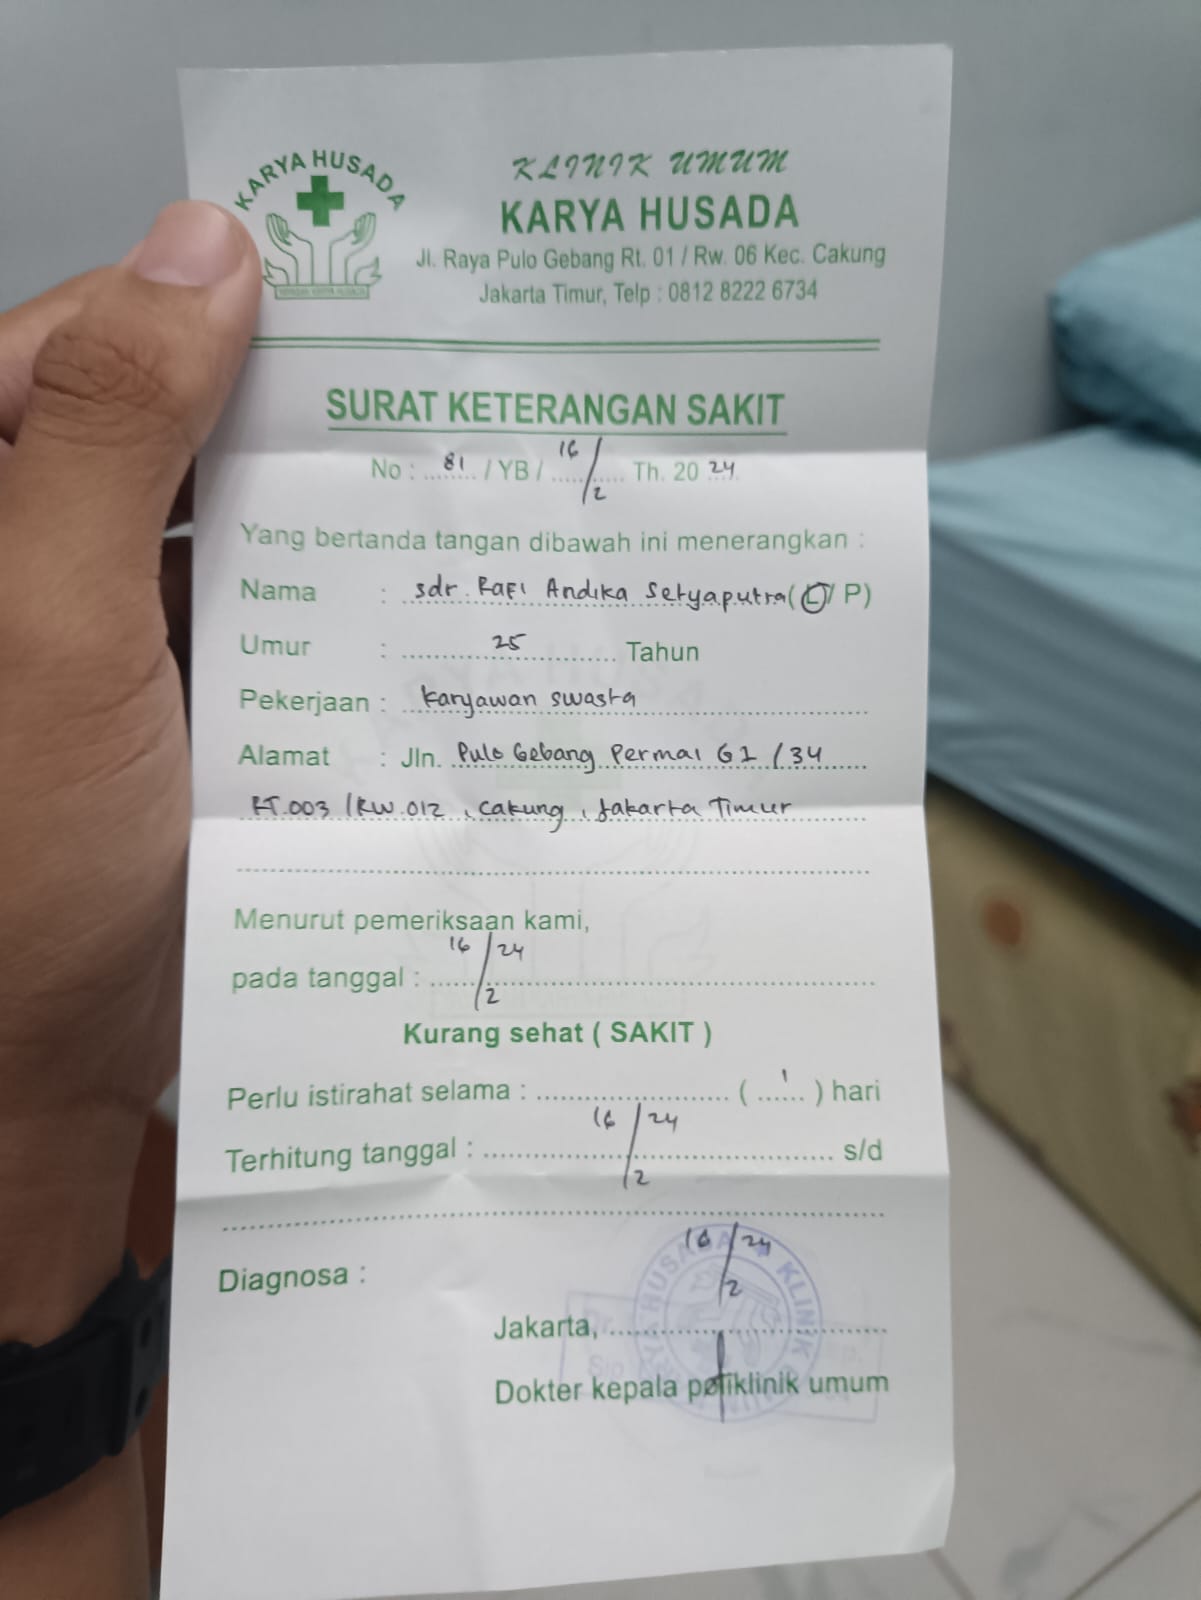 KARYA HUSADA
KLINIK UMUM
KARYA HUSADA
Jl. Raya Pulo Gebang Rt. 01 / Rw. 06 Kec. Cakung
Jakarta Timur, Telp : 0812 8222 6734
SURAT KETERANGAN SAKIT
No : 81 / YB / 16/2 Th. 20 24
Yang bertanda tangan dibawah ini menerangkan :
Nama : sdr. Rafi Andika Setyaputra (L / P)
Umur : 25 Tahun
Pekerjaan : karyawan swasta
Alamat : Jln. Pulo Gebang Permai G1 / 34
RT.003 / RW.012, Cakung, Jakarta Timur
Menurut pemeriksaan kami,
pada tanggal : 16/2 24
Kurang sehat ( SAKIT )
Perlu istirahat selama : ( 1 ) hari
Terhitung tanggal : 16/2 24 s/d
Diagnosa :
Jakarta, 16/2 24
Dokter kepala poliklinik umum
HUSADA KLINIK